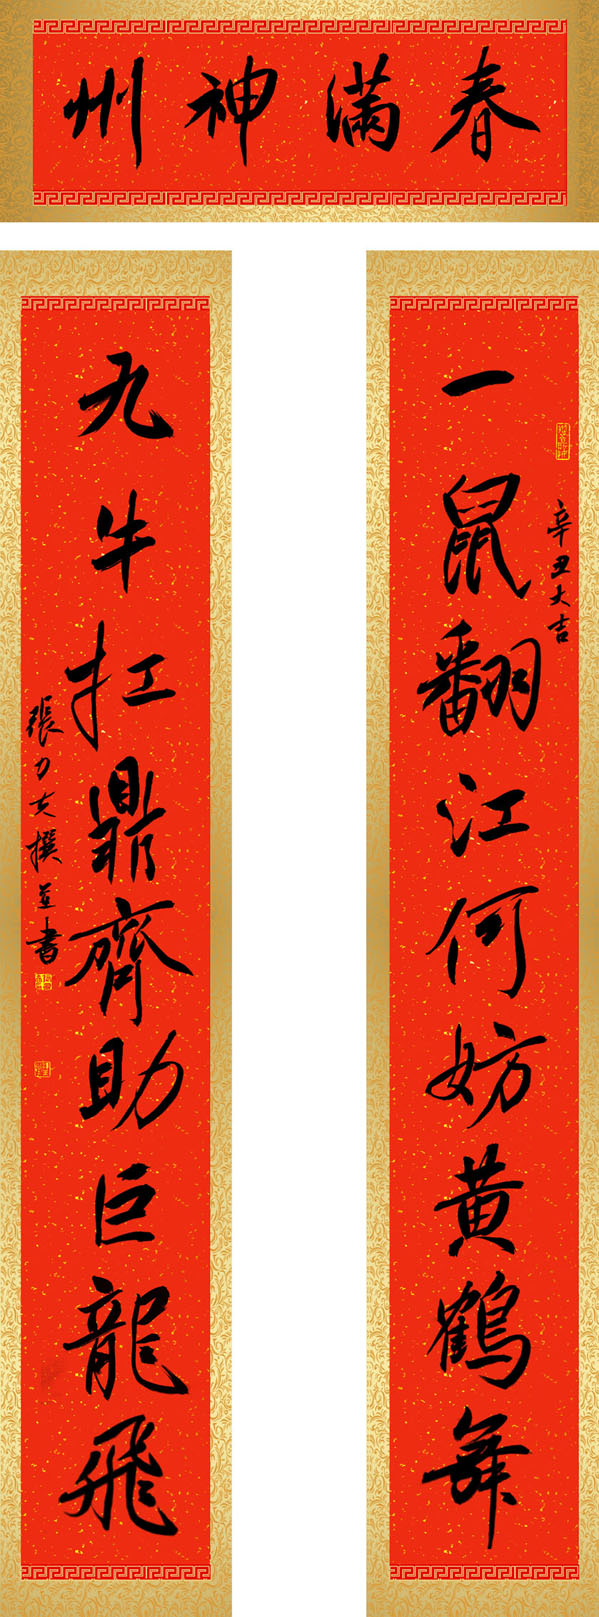 春滿神州
一鼠翻江何妨黄鶴舞
辛丑大吉
九牛扛鼎齊助巨龍飛
張力夫撰並書